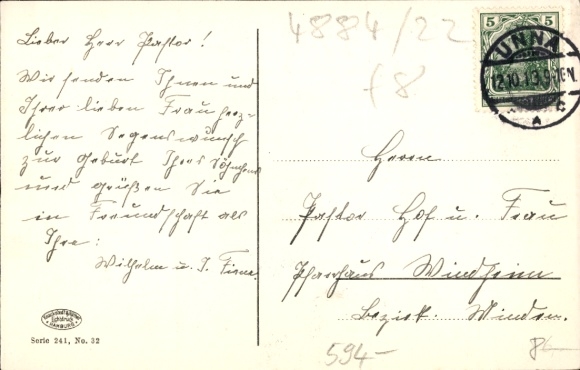 4884/22
f8
5 5
UNNA
12.10.13.9-10N.
* c
A
Lieber Herr Pastor!
Wir senden Ihnen und
Ihrer lieben Frau herz-
lichen Segenswunsch
zur Geburt Ihres Söhnchens
und grüßen Sie
in Freundschaft als
Ihre:
Wilhelm u. J.
Herrn
Pastor Hof u. Frau
Pfarrhaus Windheim
Bezirk. Minden.
HAMBURG
Serie 241, No. 32
594-
8-